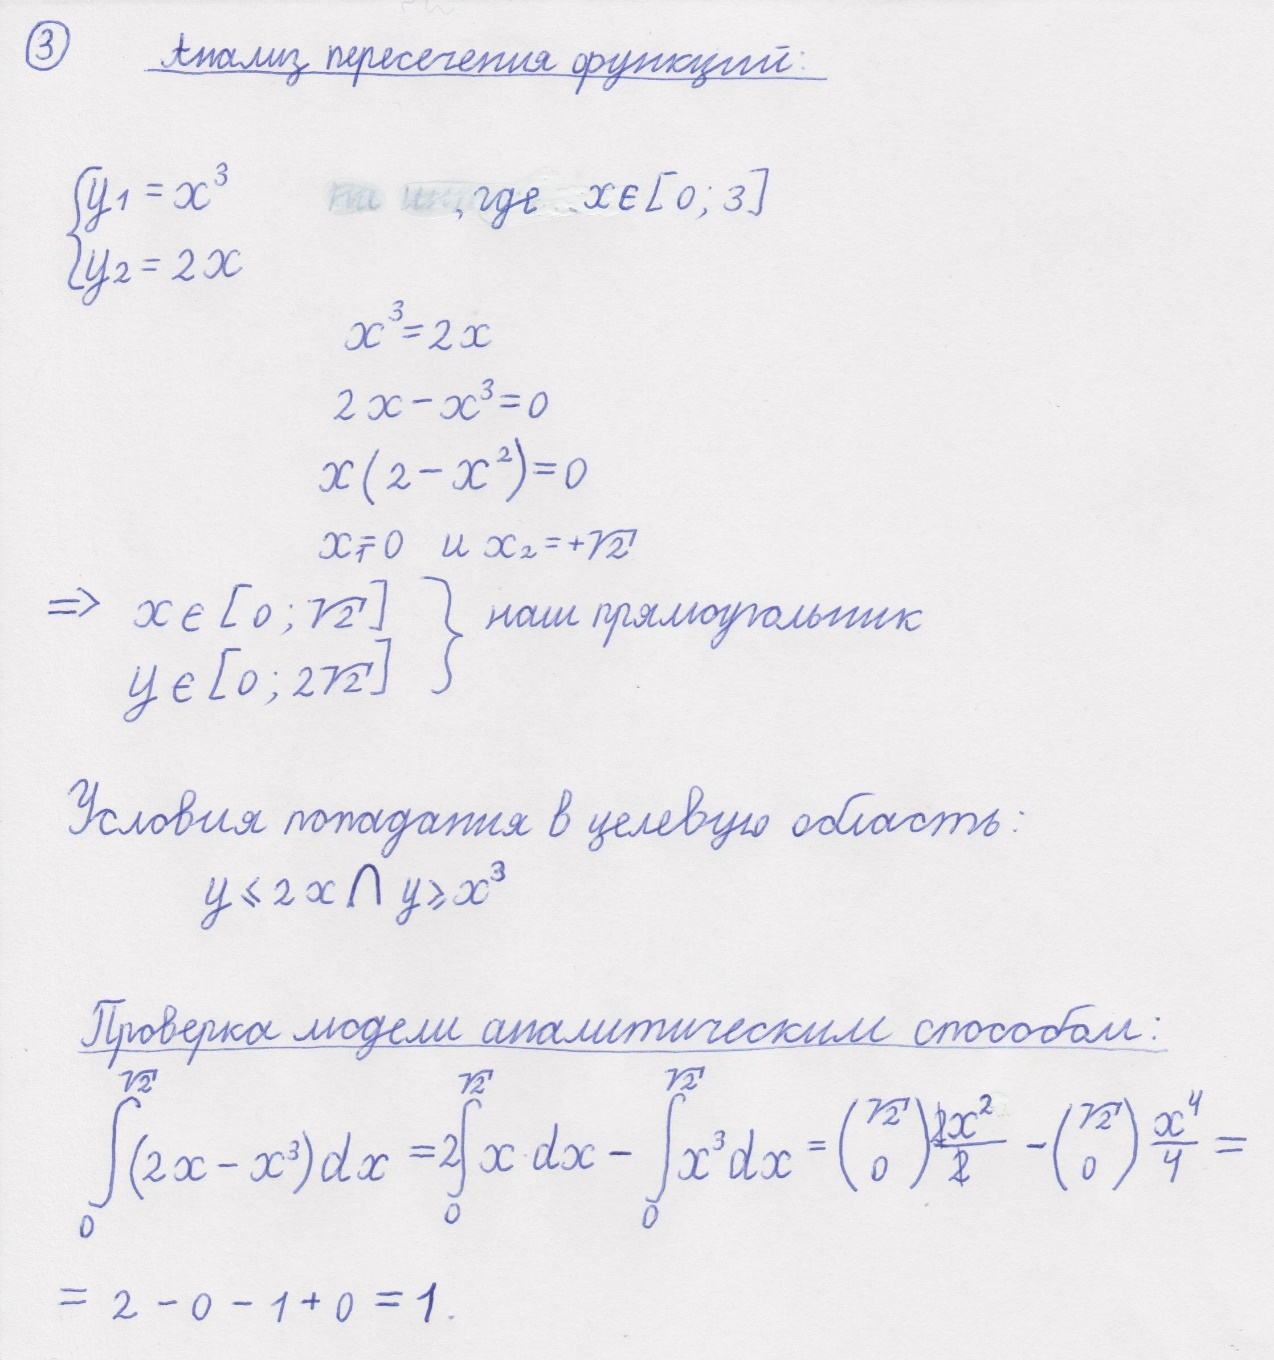 ③ Анализ пересечения функций:
{ y1 = x³ , где x ∈ [0; 3]
y2 = 2x
x³ = 2x
2x - x³ = 0
x(2 - x²) = 0
x1 = 0 и x2 = +√2
=> x ∈ [0; √2] } наш прямоугольник
y ∈ [0; 2√2]
Условия попадания в целевую область:
y ⩽ 2x ∩ y ⩾ x³
Проверка модели аналитическим способом:
∫₀^√2 (2x - x³) dx = 2∫₀^√2 x · dx - ∫₀^√2 x³ dx = (√2 0) 2x²/2 - (√2 0) x⁴/4 =
= 2 - 0 - 1 + 0 = 1.